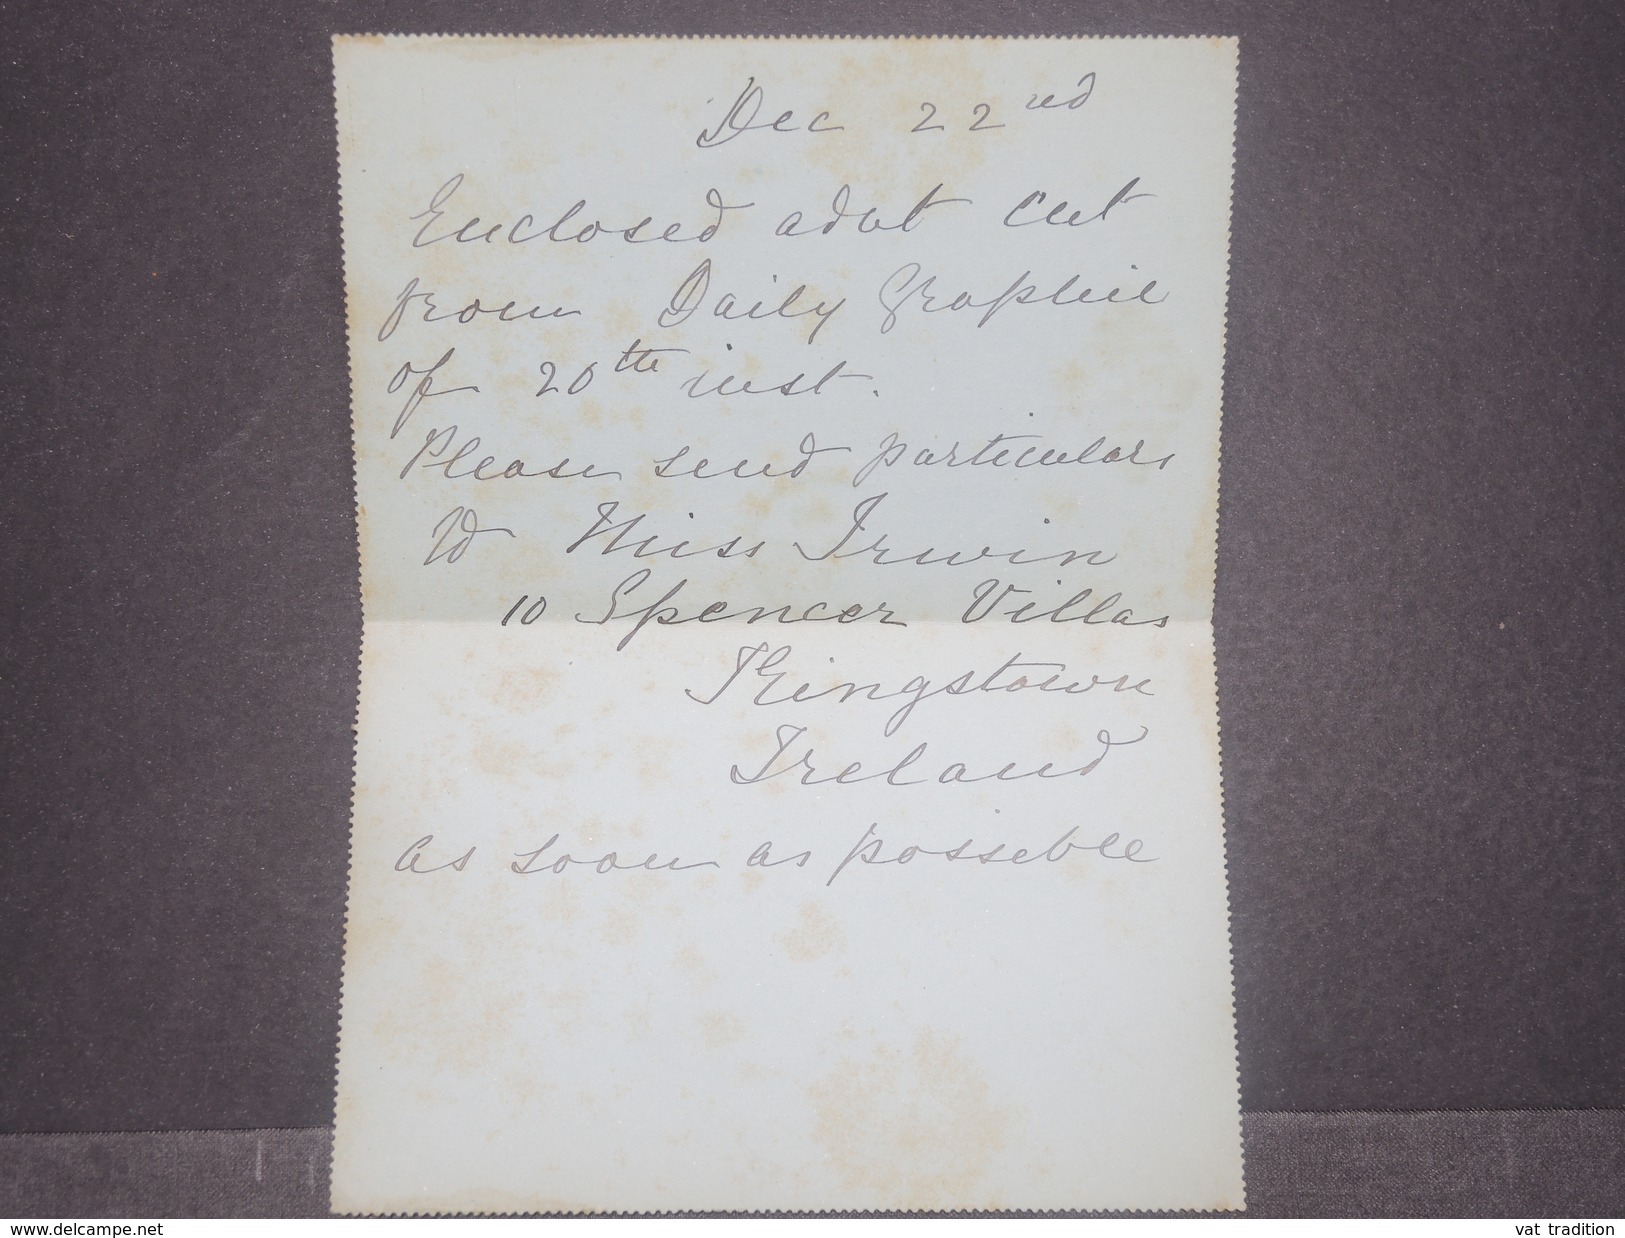 Dec 22nd
Enclosed advt cut
from Daily Graphic
of 20th inst.
Please send particulars
to Miss Irwin
10 Spencer Villas
Kingstown
Ireland
as soon as possible
www.delcampe.net
vat tradition